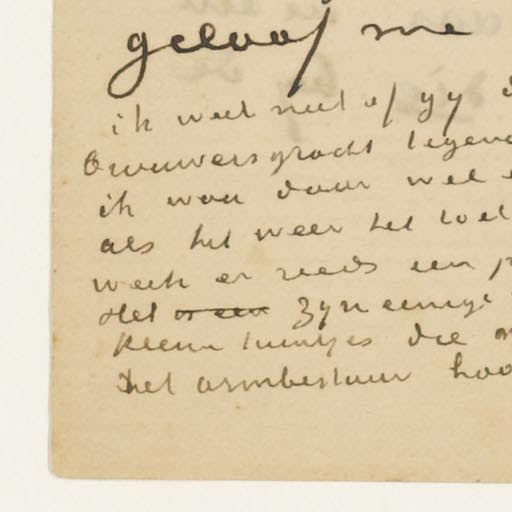 geloof me
ik weet niet of gy
Brouwersgracht tegen
ik wou daar wel
als het weer het toel
week er reeds een
Het is een zyn eenige
kleine tuintjes die
het armbestuur hoo